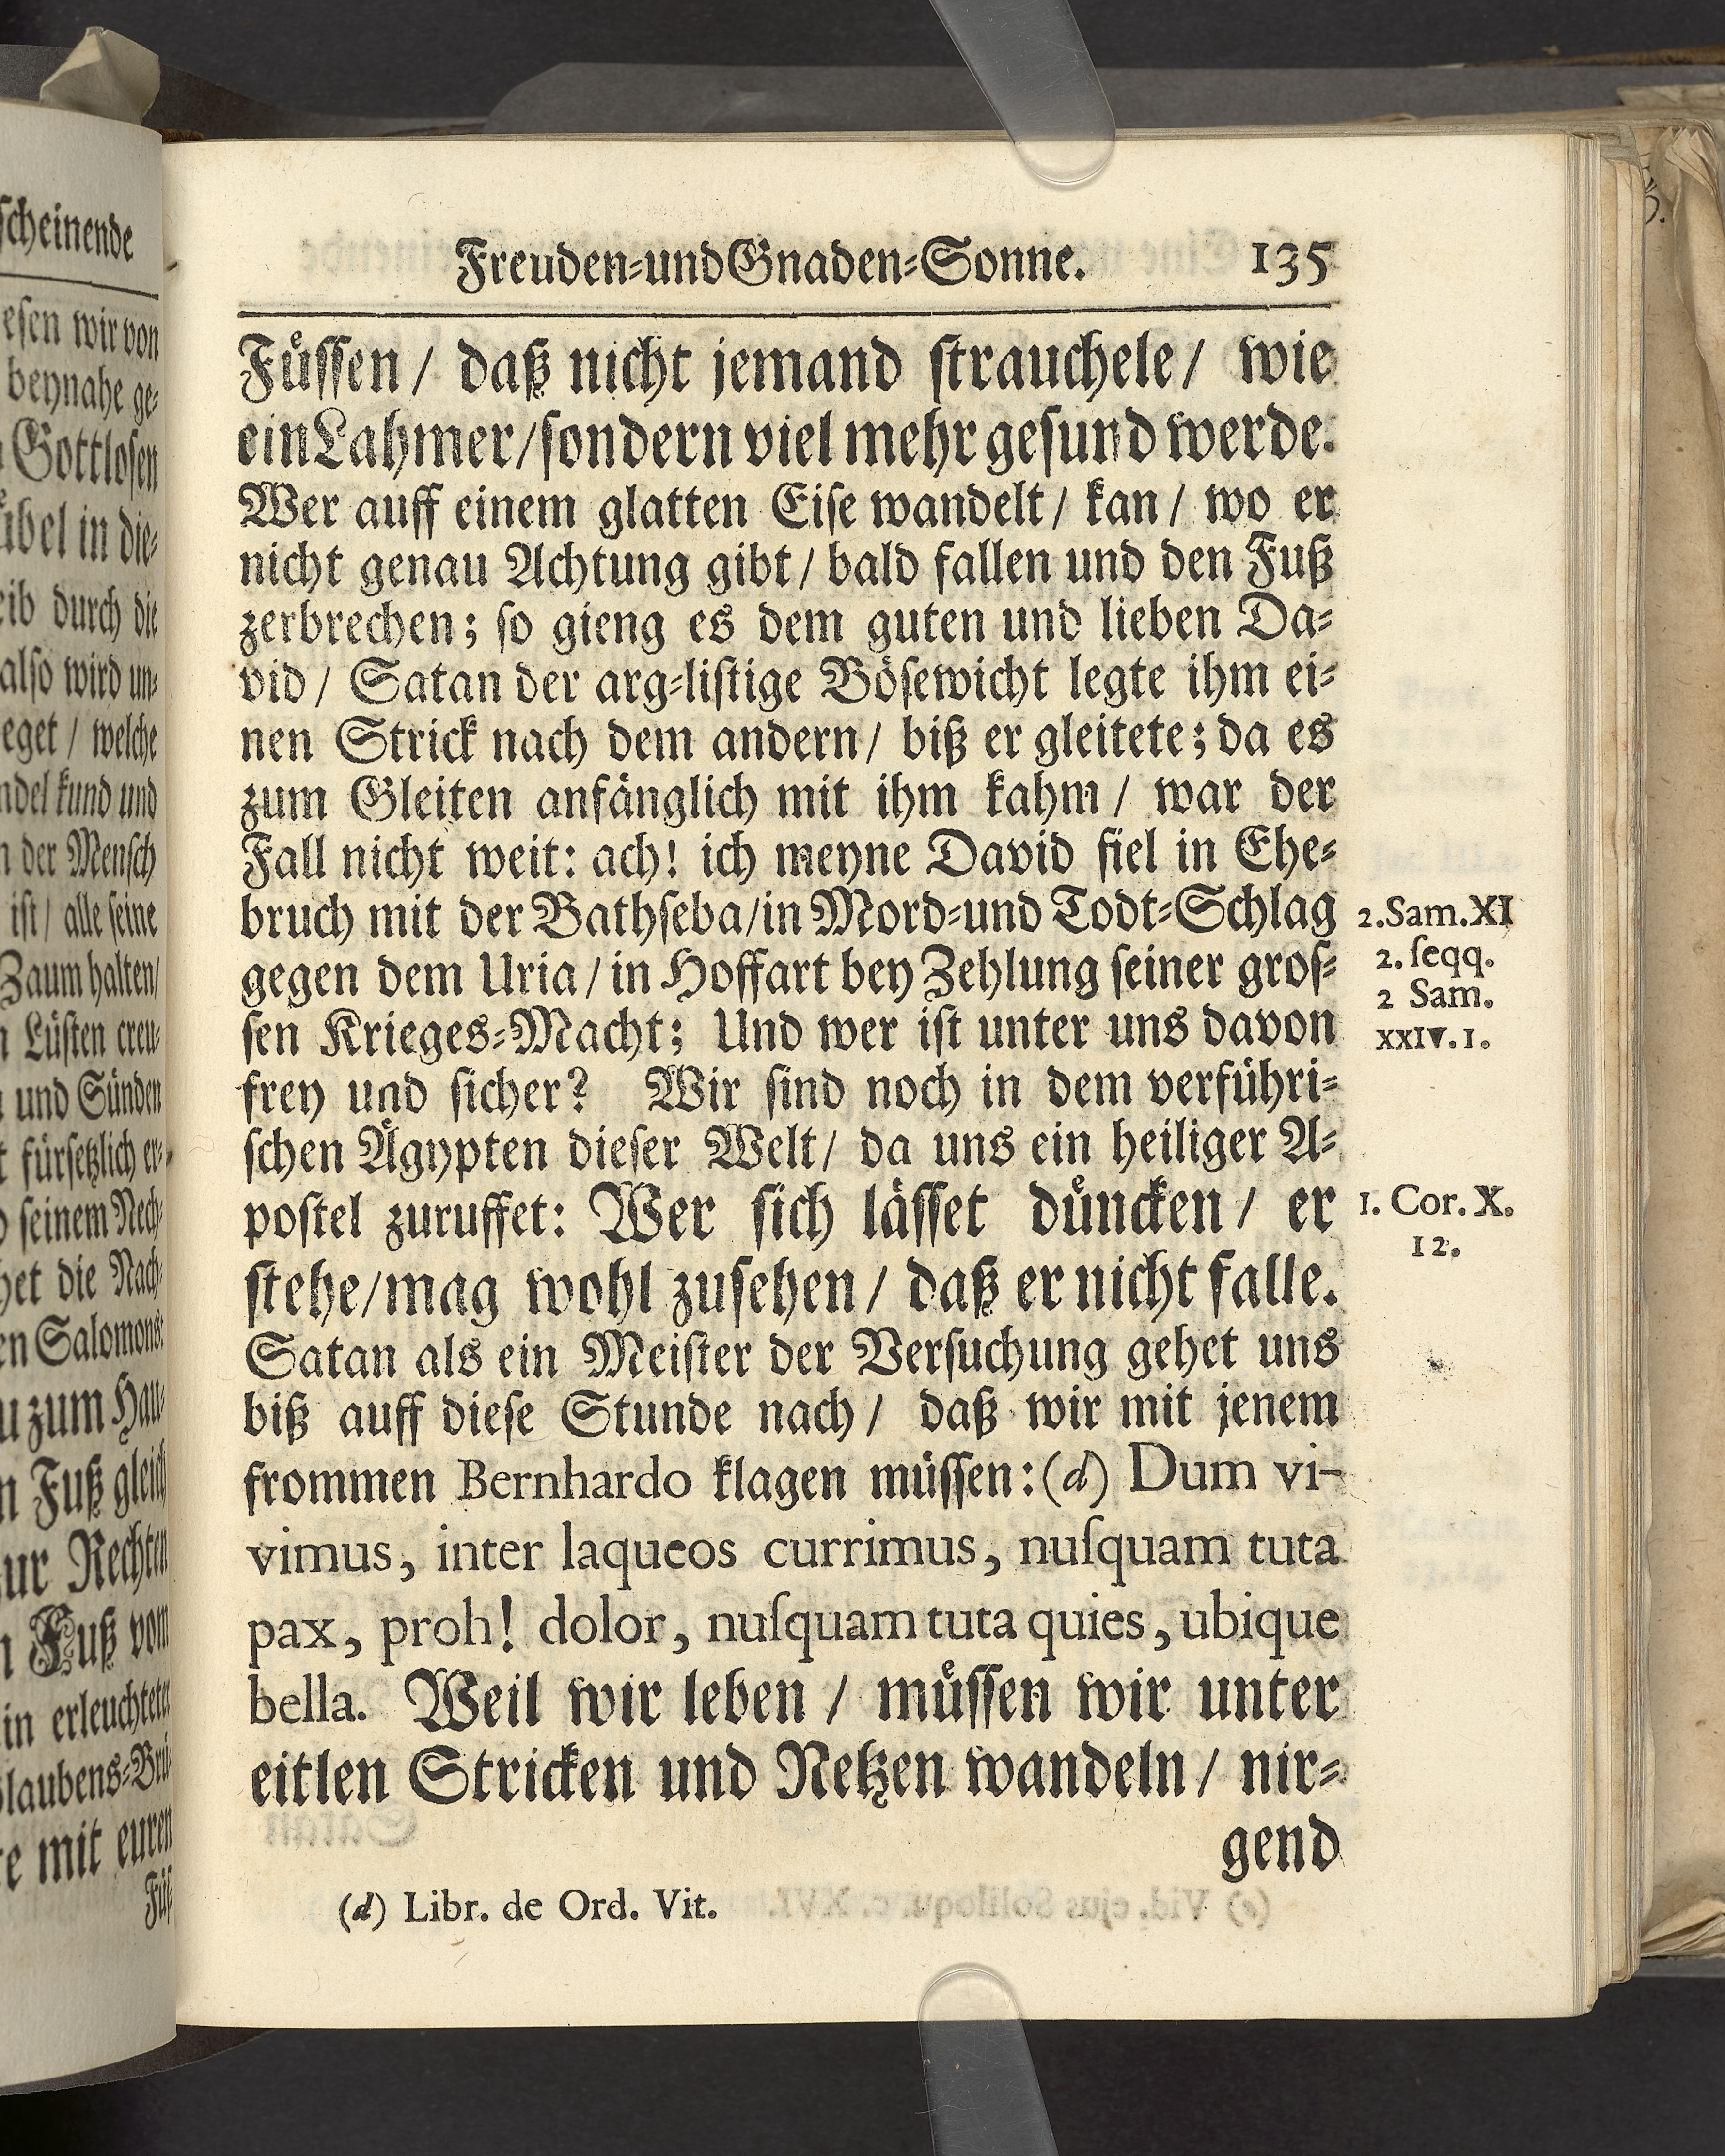 scheinende
esen wir von
beynahe ge-
Gottlosen
übel in die-
eib durch die
also wird un-
eget / welche
ndel kund und
n der Mensch
ist / alle seine
Zaum halten/
n Lüsten creu-
und Sünden
t fürsetzlich er-
seinem Nech-
het die Nach-
en Salomons:
u zum Hau-
n Fuß gleich
ur Rechten
n Fuß vom
in erleuchteter
laubens-Brü-
te mit euren
Füs-
Freuden-und Gnaden-Sonne. 135
Füssen / daß nicht jemand strauchele / wie
ein Lahmer / sondern viel mehr gesund werde.
Wer auff einem glatten Eise wandelt / kan / wo er
nicht genau Achtung gibt / bald fallen und den Fuß
zerbrechen; so gieng es dem guten und lieben Da-
vid / Satan der arg-listige Bösewicht legte ihm ei-
nen Strick nach dem andern / biß er gleitete; da es
zum Gleiten anfänglich mit ihm kahm / war der
Fall nicht weit: ach! ich meyne David fiel in Ehe-
bruch mit der Bathseba / in Mord-und Todt-Schlag
gegen dem Uria / in Hoffart bey Zehlung seiner gros-
sen Krieges-Macht; Und wer ist unter uns davon
frey und sicher? Wir sind noch in dem verführi-
schen Ägypten dieser Welt / da uns ein heiliger A-
postel zuruffet: Wer sich lässet düncken / er
stehe / mag wohl zusehen / daß er nicht falle.
Satan als ein Meister der Versuchung gehet uns
biß auff diese Stunde nach / daß wir mit jenem
frommen Bernhardo klagen müssen: (d) Dum vi-
vimus, inter laqueos currimus, nuſquam tuta
pax, proh! dolor, nuſquam tuta quies, ubique
bella. Weil wir leben / müssen wir unter
eitlen Stricken und Netzen wandeln / nir-
gend
(d) Libr. de Ord. Vit.
2. Sam. XI
2. ſeqq.
2 Sam.
XXIV. 1.
1. Cor. X.
12.